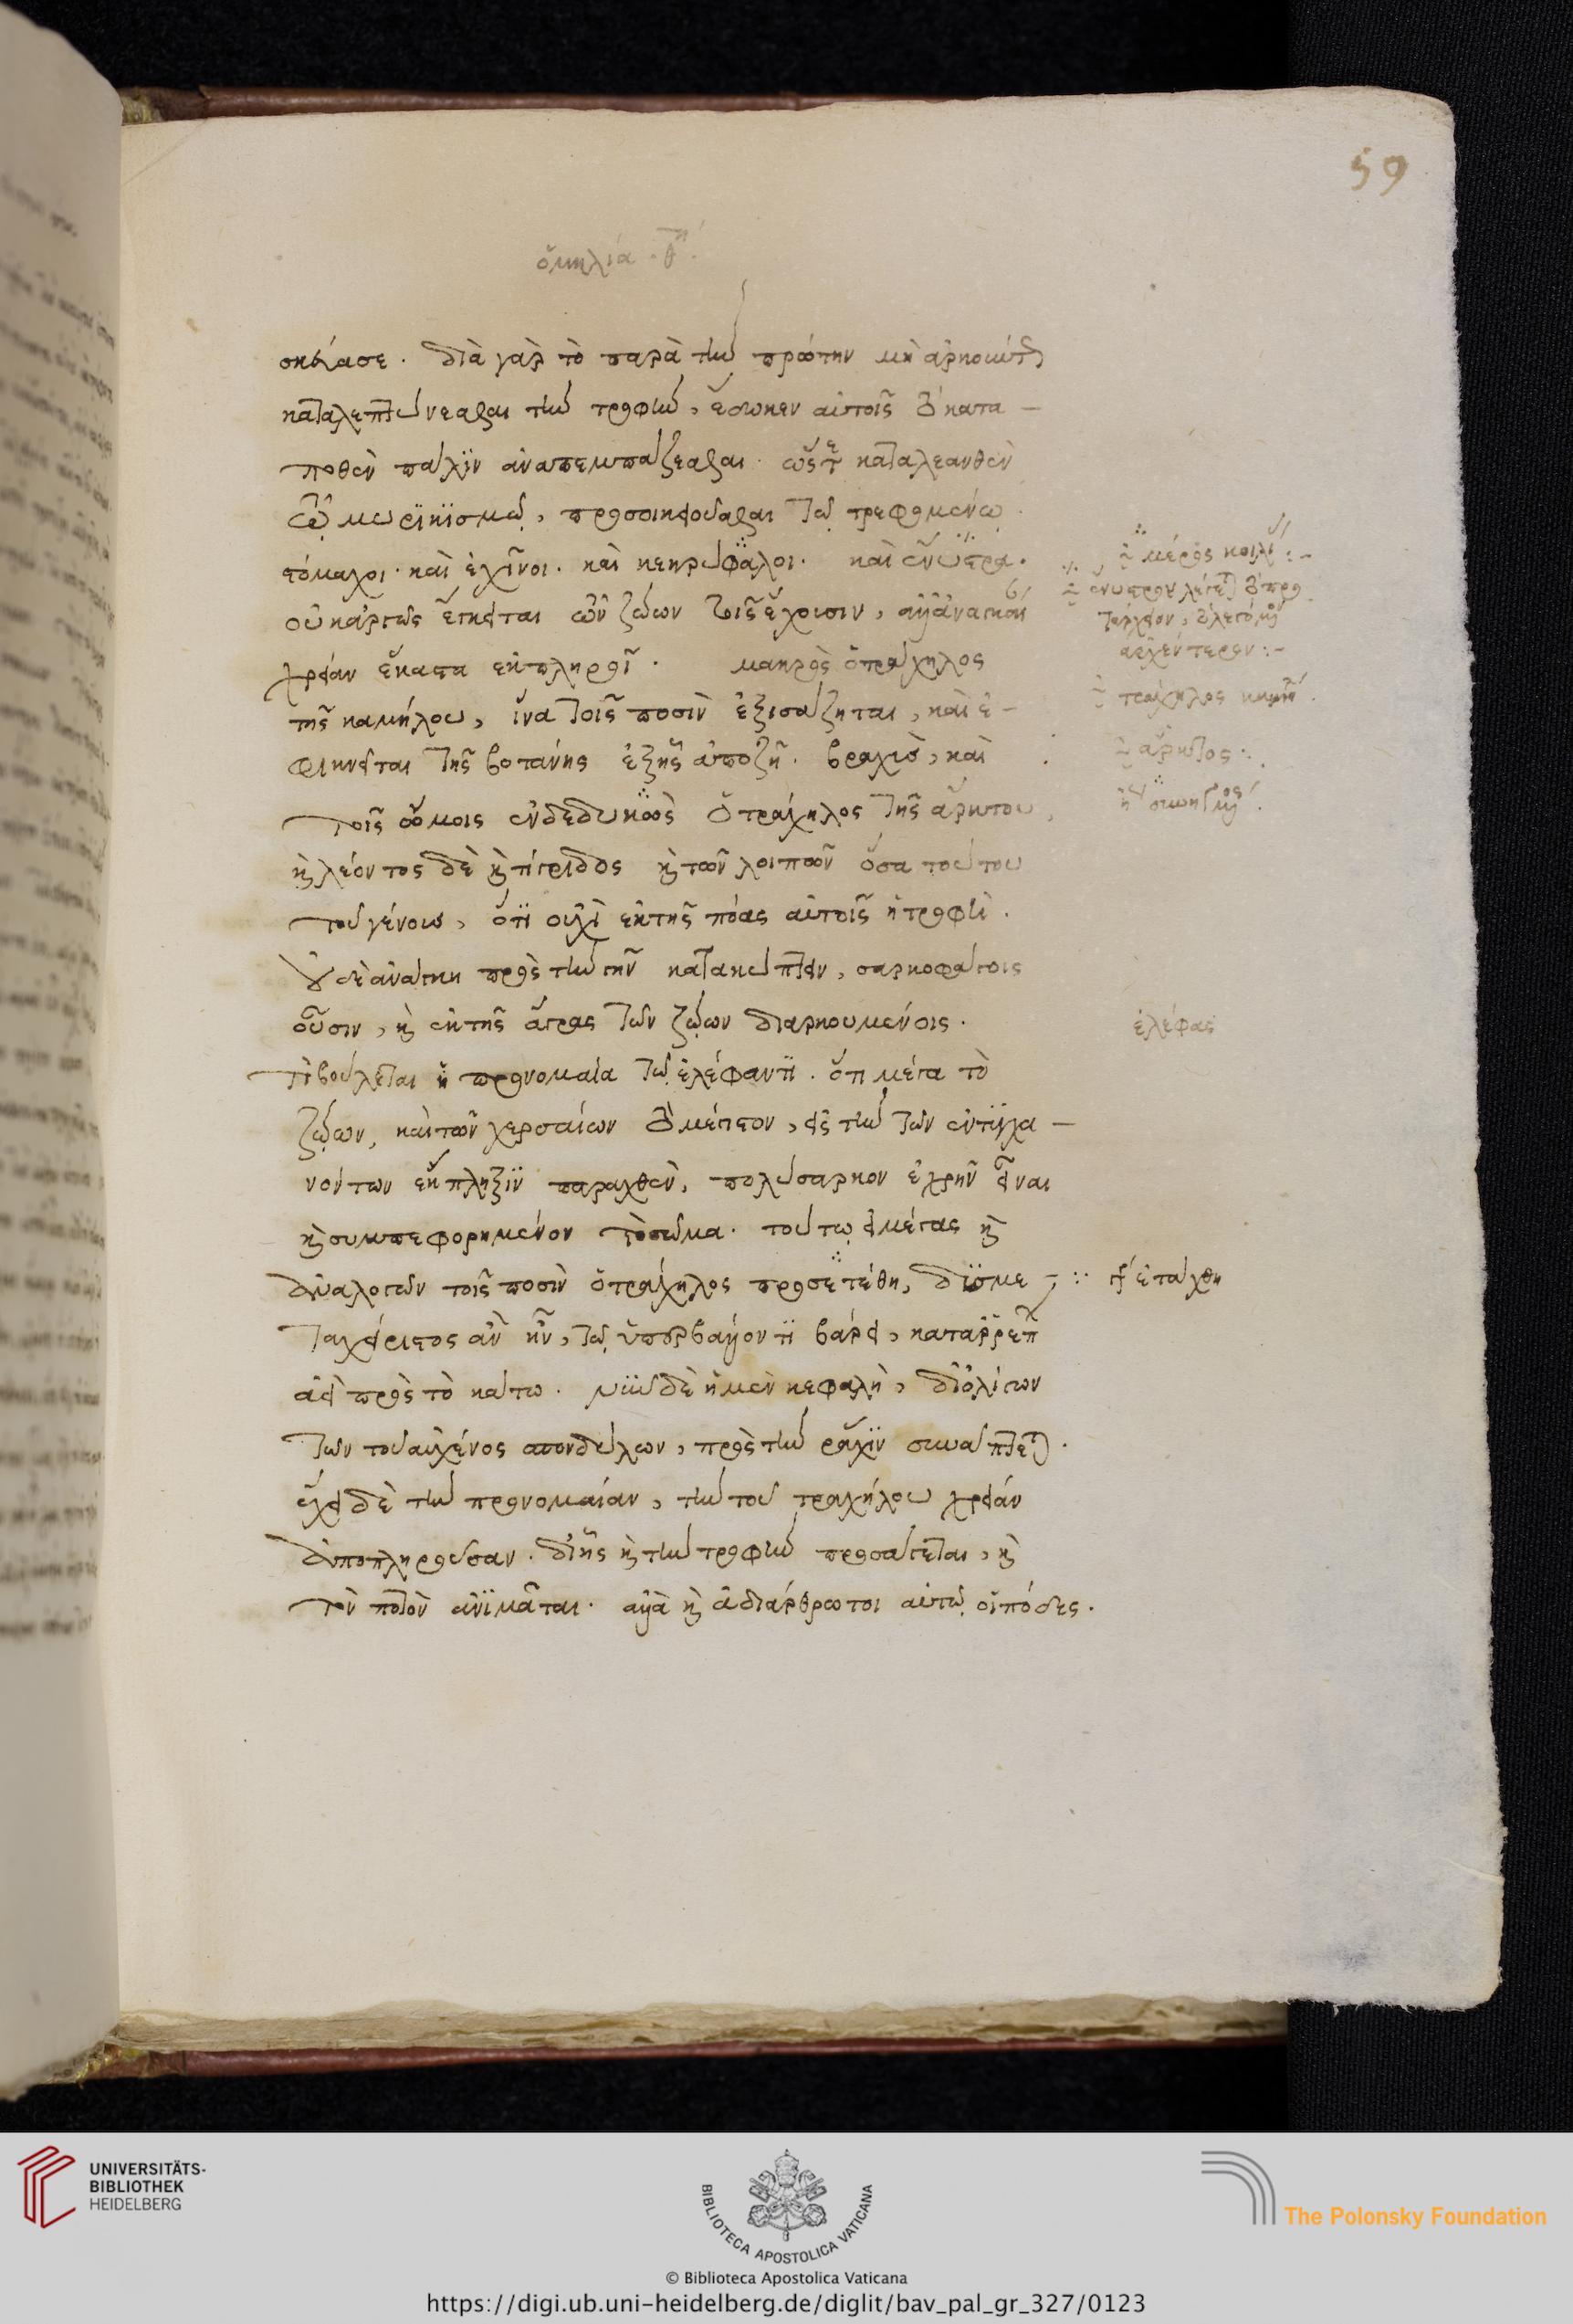 59
ὁμηλία θ΄
σκεύασε. διὰ γὰρ τὸ παρὰ τὴν πρώτην μὴ ἀρκούντως
καταλεπτύνεσθαι τὴν τροφὴν, ἔδωκεν αὐτοῖς τὸ κατα-
ποθὲν πάλϊν ἀναπεμπάζεσθαι. ὥστε καταλεανθὲν
τῶ μυρϊκϊσμῶ, προσοικειοῦσθαι τῶ τρεφομένω.
στόμαχοι. καὶ ἐχῖνοι. καὶ κεκρύφαλοι. καὶ ἔνυστρα.
οὐκ ἀργῶς ἔγκειται τῶν ζώων τοῖς ἔχουσιν, ἀλλ' ἀναγκαίαν
χρείαν ἕκαστα ἐκπληροῖ. μακρὸς ὁ τράχηλος
τῆς καμήλου, ἵνα τοῖς ποσὶν ἐξισάζηται, καὶ ἐ-
φικνεῖται τῆς βοτάνης ἐξ ἧς ἀποζῆ. βραχὺς, καὶ
τοῖς ὤμοις ἐνδεδυκὼς ὁ τράχηλος τῆς ἄρκτου,
καὶ λέοντος δὲ καὶ τίγριδος καὶ τῶν λοιπῶν ὅσα τούτου
τοῦ γένους, ὅτϊ οὐχὶ ἐκ τῆς πόας αὐτοῖς ἡ τροφὴ.
οὐδὲ ἀνάγκη πρὸς τὴν γῆν κατακύπτειν, σαρκοφάγοις
οὖσιν, καὶ ἐκ τῆς ἄγρας τῶν ζώων διαρκουμένοις.
τί βούλεται ἡ προνομαία τῶ ἐλέφαντϊ. ὅτι μέγα τὸ
ζώων, καὶ τῶν χερσαίων τὸ μέγιστον, εἰς τὴν τῶν ἐντϋγχα-
νόντων ἔκπληξϊν παραχθὲν, πολύσαρκον ἐχρῆν εἶναι
καὶ συμπεφορημένον τὸ σῶμα. τούτω εἰ μέγας καὶ
ἀναλογῶν τοῖς ποσὶν ὁ τράχηλος προσετέθη, δυσμε-
ταχείριστος ἂν ἦν, τῶ ὑπερβάλλοντϊ βάρει, καταρρέπων
ἀεὶ πρὸς τὸ κάτω. νῦν δὲ ἡ μὲν κεφαλὴ, δι' ὀλίγων
τῶν τοῦ αὐχένος σπονδύλων, πρὸς τὴν ῥάχϊν συνάπτεται.
ἔχει δὲ τὴν προνομαίαν, τὴν τοῦ τραχήλου χρείαν
ἀποπληροῦσαν. δι' ἧς καὶ τὴν τροφὴν προσάγεται, καὶ
τὸν ποτὸν ἀνϊμᾶται. ἀλλὰ καὶ ἀδιάρθρωτοι αὐτῶ οἱ πόδες.
μέρος κοιλί
ἔνυστρον λέγεται τὸ προ
ἐλέφας
ἐτάχθη
τράχηλος καμήλου
ἄρκτος
UNIVERSITÄTS-
BIBLIOTHEK
HEIDELBERG
BIBLIOTECA APOSTOLICA VATICANA
The Polonsky Foundation
© Biblioteca Apostolica Vaticana
https://digi.ub.uni-heidelberg.de/diglit/bav_pal_gr_327/0123